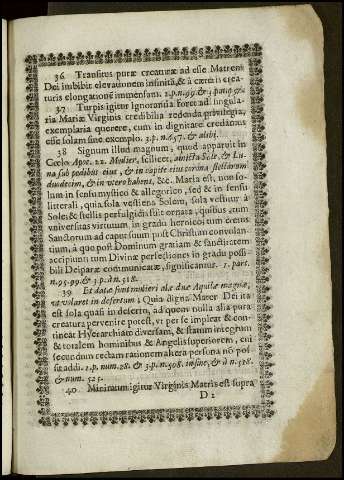 36. Transitus puræ creaturæ ad esse Matrem
Dei imbibit elevationem infinitã, & à cæteris crea-
turis elongationẽ immensam. 1.p.n.99. & 3.p.n.19.
37. Turpis igitur Ignorantia foret ad singula-
ria Mariæ Virginis credibilia redonda privilegia,
exemplaria querere, cum in dignitate credamus
esse solam sine exemplo. 3.p.n.657. & alibi.
38 Signum illud magnum, quod apparuit in
Cœlo Apoc. 12. Mulier, scilicet, amicta Sole, & Lu-
na sub pedibus eius, & in capite eius corona stellarum
duodecim, & in utero habens, &c. Maria est, non so-
lum in sensu mystico & allegorico, sed & in sensu
litterali, quia sola vestiens Solem, sola vestitur à
Sole; & stellis perfulgidis fuit ornata, quibus, cum
vniversitas virtutum in gradu heroico; tum cœtus
Sanctorum ad caput suum post Christum convolan-
tium, à quo post Dominum gratiam & sanctitatem
accipiunt; tum Divinæ perfectiones in gradu possi-
bili Deiparæ communicatæ, significantur. 1. part.
n.95.99. & 3.p. dn.518.
39. Et datæ sunt mulieri alæ duæ Aquilæ magnæ,
ut volaret in desertum; Quia digna Mater Dei ita
est sola quasi in deserto, ad quem nulla alia pura
creatura pervenire potest, vt per se impleat & con-
tineat Hyerarchiam diversam, & statum integrum
& totalem hominibus & Angelis superiorem, cui
secundum rectam rationem altera persona nõ pos-
sit addi. 1.p. num.28. & 3.p.n.508. in fine, & d n.518.
& num. 525.
40 Minimum igitur Virginis Matris est supra
D 2